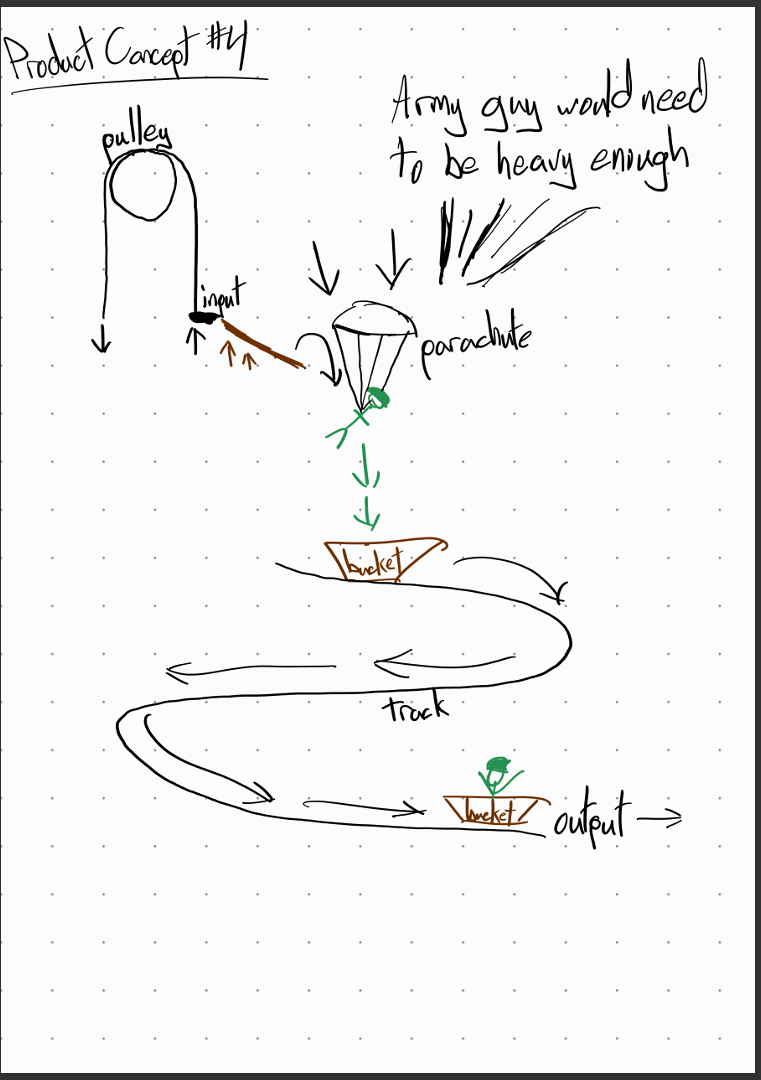 Product Concept #4
Army guy would need
to be heavy enough
pulley
input
parachute
bucket
track
bucket
output